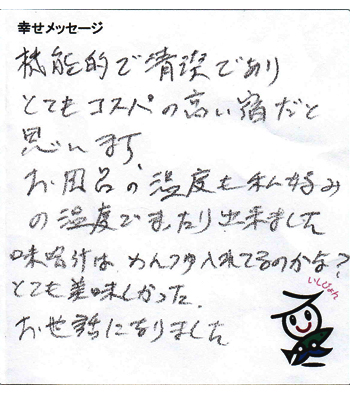 幸せメッセージ
機能的で清潔であり
とてもコスパの高い宿だと
思います、
お風呂の温度も私好み
の温度でまったり出来ました
味噌汁は めんつゆ入れてるのかな?
とても美味しかった.
お世話になりました